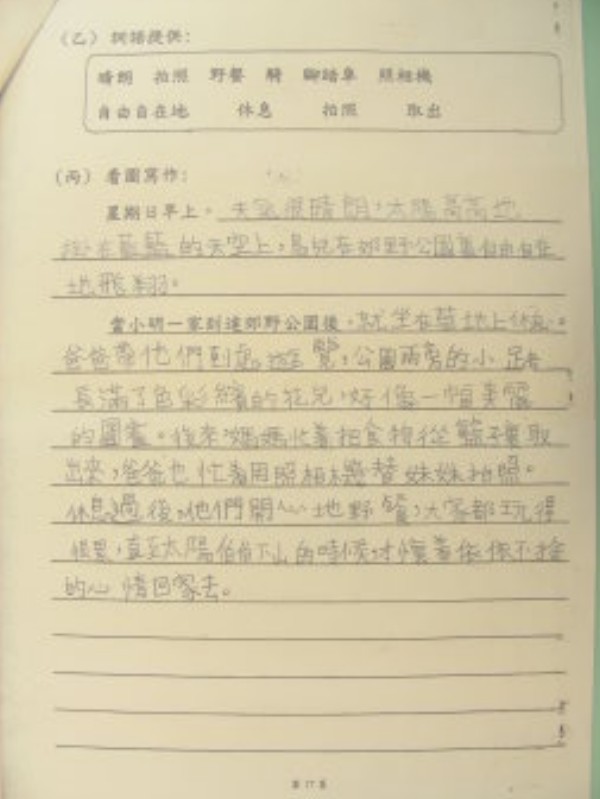 （乙） 詞語提供：
晴朗 拍照 野餐 騎 腳踏車 照相機
自由自在地 休息 拍照 取出
（丙） 看圖寫作：
星期日早上，天氣很晴朗，太陽高高地
掛在藍藍的天空上，鳥兒在郊野公園裏自由自在
地飛翔。
當小明一家到達郊野公園後，就坐在草地上休息。
爸爸帶他們到處遊覽，公園兩旁的小
長滿了色彩繽的花兒，好像一幅美麗
的圖畫。後來，媽媽忙着把食物從籃子裏取
出來，爸爸也忙着用照相機替妹妹拍照。
休息過後，他們開心地野餐，大家都玩得
很累，直至太陽伯伯下山的時候，才懷着依依不捨
的心情回家去。
第 17 頁